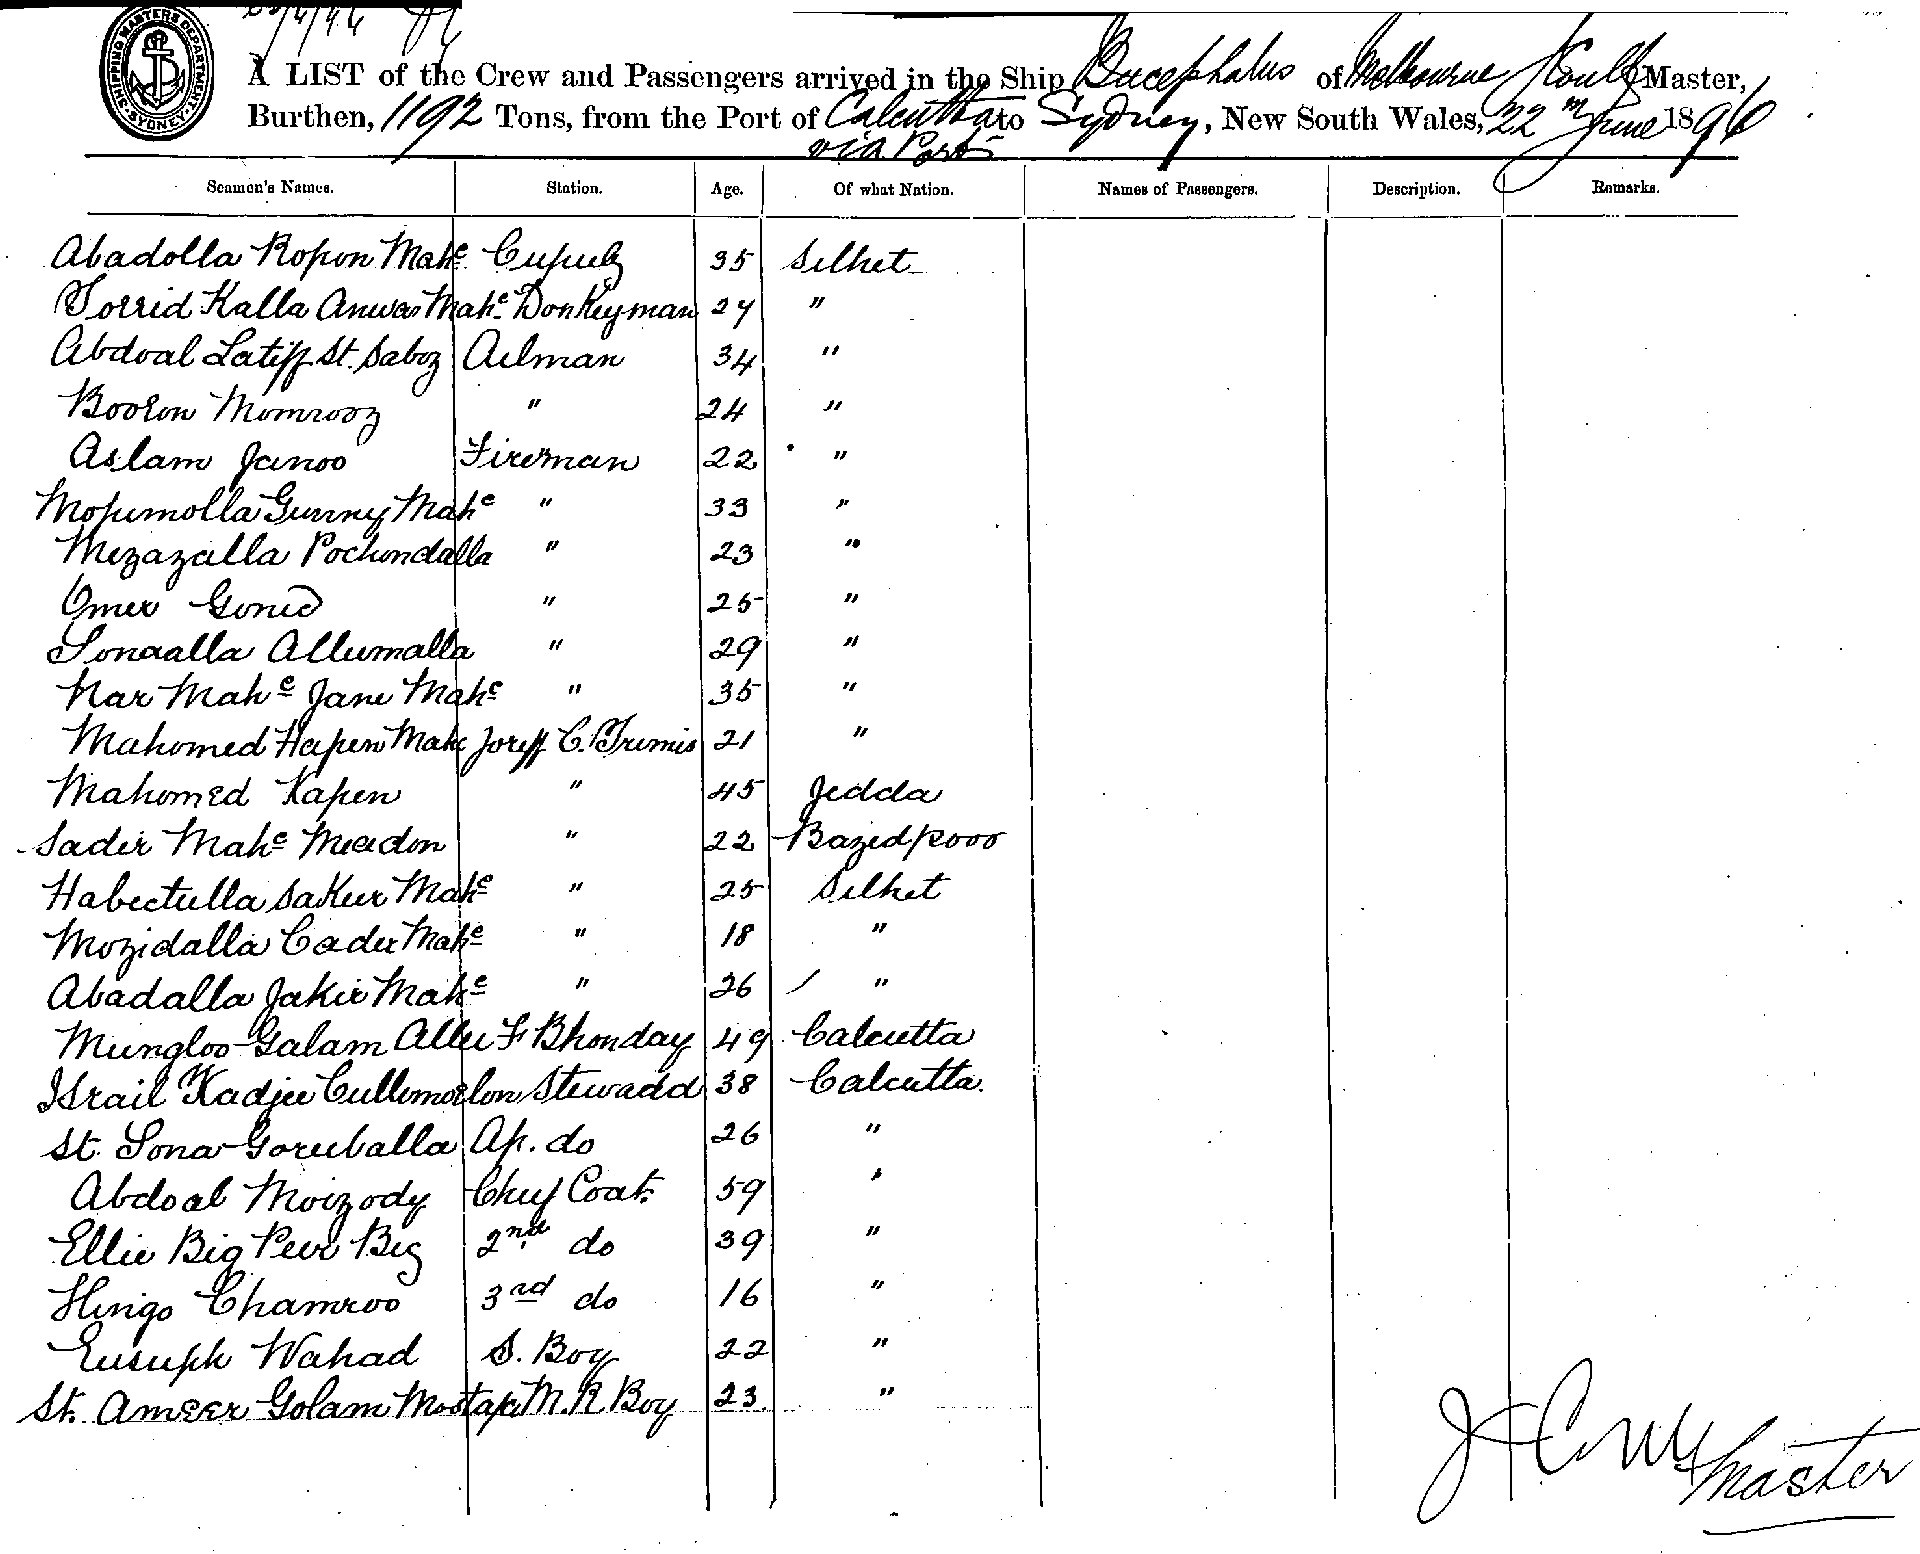 SHIPPING MASTERS DEPARTMENT SYDNEY
A LIST of the Crew and Passengers arrived in the Ship Bucephalus of Melbourne Master,
Burthen, 1192 Tons, from the Port of Calcutta to Sydney, New South Wales, 22nd June 1896
via Ports
Seamen's Names. Station. Age. Of what Nation. Names of Passengers. Description. Remarks.
Abadolla Ropon Mahe 35 Silhet
Torrid Kalla Anwar Mahe Donkeyman 27 "
Abdoal Latiff St. Saboz Ailman 34 "
Booron Momrooz " 24 "
Aslam Janoo Fireman 22 "
Mopumolla Gunny Mahe " 33 "
Mezazalla Pochondalla " 23 "
Omer Gonied " 25 "
Sonaalla Allumalla " 29 "
Nar Mahe Jane Mahe " 35 "
Mahomed Hapen Mahe 21 "
Mahomed Kapen " 45 Jedda
Sadir Mahe Meadon " 22 Bazedpooo
Habectulla Sakur Mahe " 25 Silhet
Mozidalla Cader Mahe " 18 "
Abadalla Jakir Mahe " 26 "
Mungloo Galam Allee F Bhonday 49 Calcutta
Israil Kadjee Cullemoelon Stewadd 38 Calcutta.
St. Sona Goruballa Ap. do 26 "
Abdoal Moizody Chuf Coat. 59 "
Ellie Big Peer Beg 2nd do 39 "
Hingo Chamroo 3rd do 16 "
Eusuph Wahad S. Boy 22 "
St. Ameer Golam Mostape M. R Boy 23 "
Master